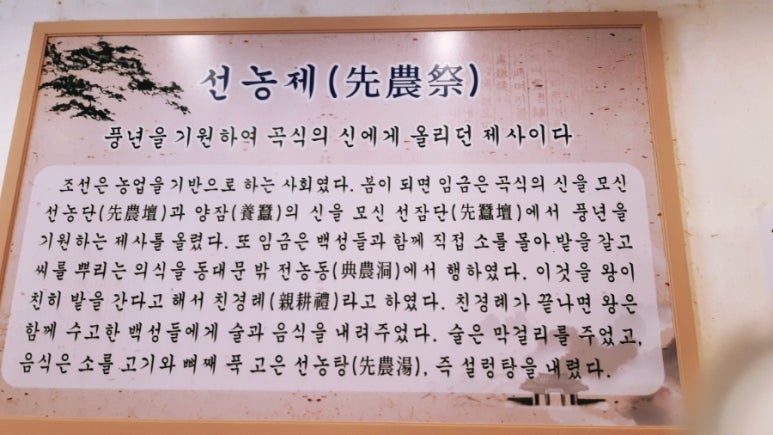 선농제(先農祭)
풍년을 기원하여 곡식의 신에게 올리던 제사이다
조선은 농업을 기반으로 하는 사회였다. 봄이 되면 임금은 곡식의 신을 모신
선농단(先農壇)과 양잠(養蠶)의 신을 모신 선잠단(先蠶壇)에서 풍년을
기원하는 제사를 올렸다. 또 임금은 백성들과 함께 직접 소를 몰아 밭을 갈고
씨를 뿌리는 의식을 동대문 밖 전농동(典農洞)에서 행하였다. 이것을 왕이
친히 밭을 간다고 해서 친경례(親耕禮)라고 하였다. 친경례가 끝나면 왕은
함께 수고한 백성들에게 술과 음식을 내려주었다. 술은 막걸리를 주었고,
음식은 소를 고기와 뼈째 푹 고은 선농탕(先農湯), 즉 설렁탕을 내렸다.